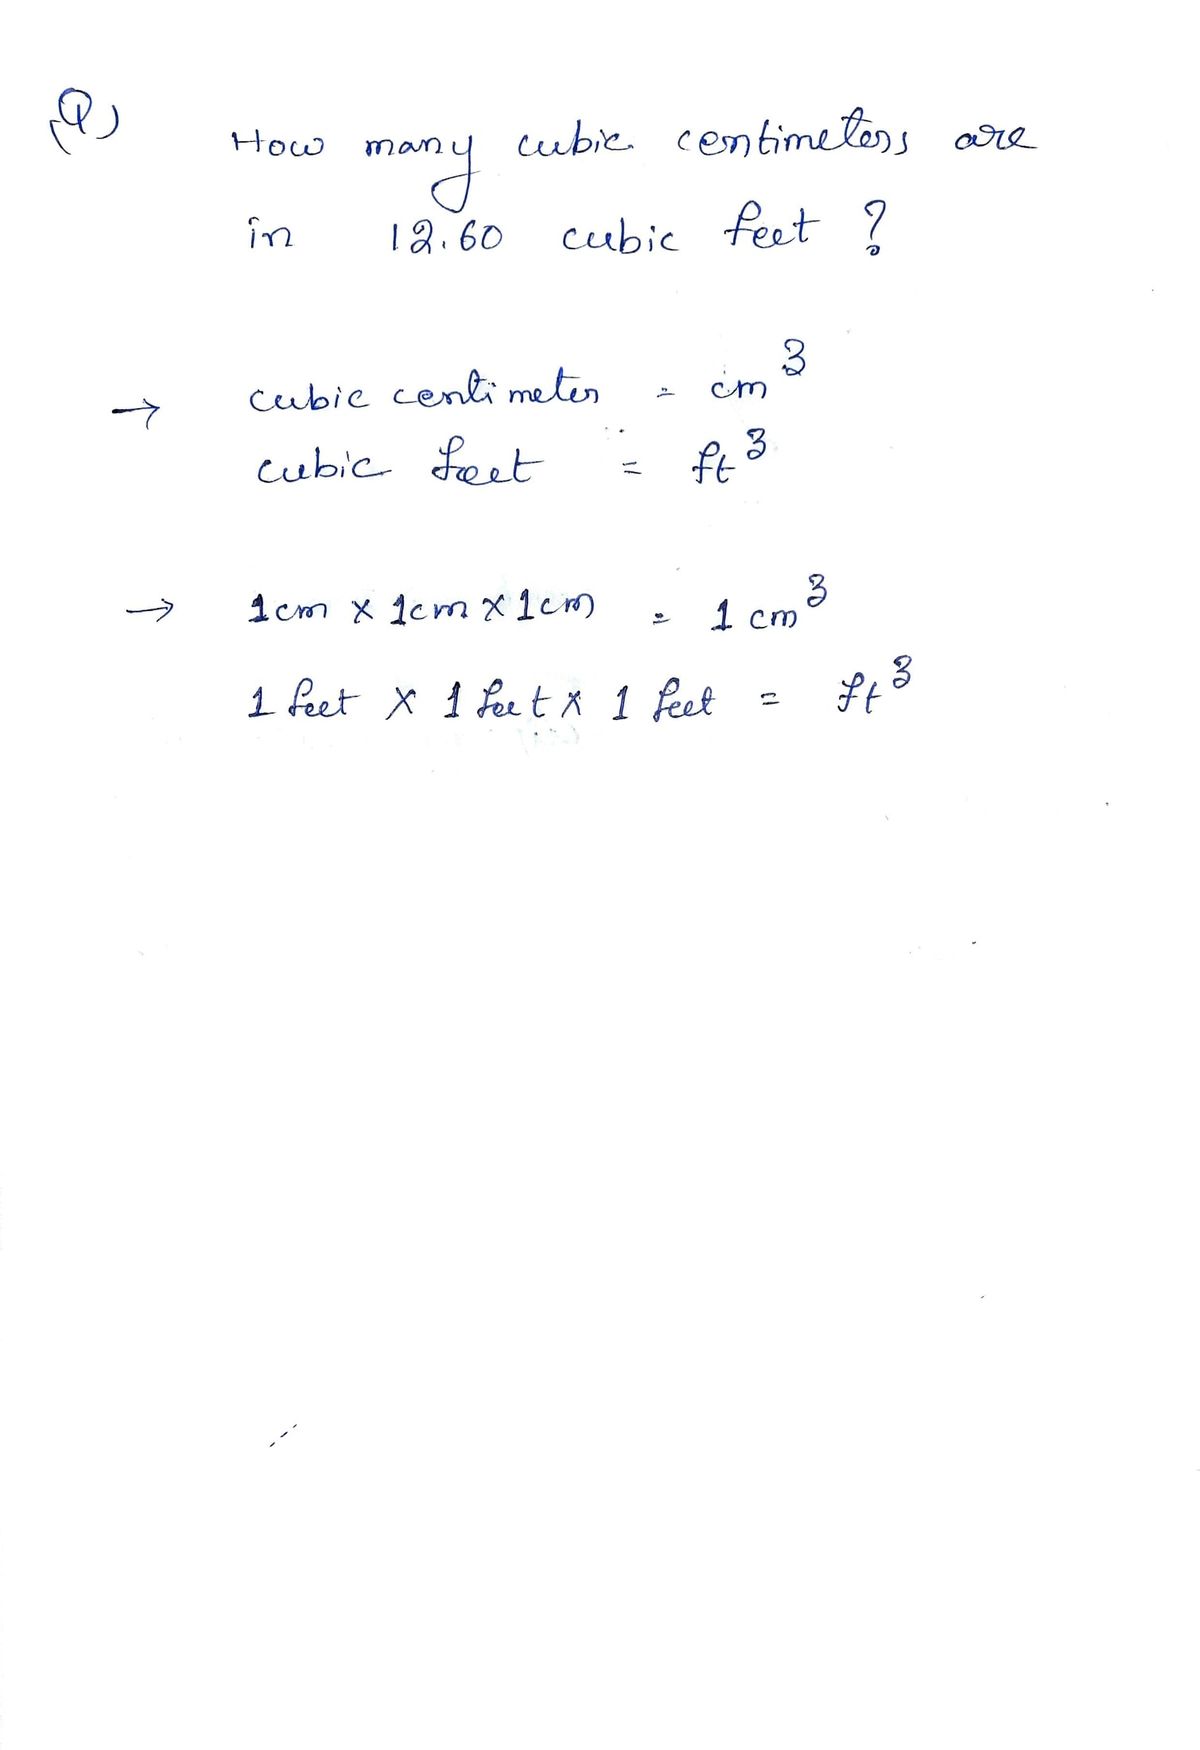 Q)
How many cubic centimeters are
in 12.60 cubic feet ?
→ cubic centimeter = cm³
cubic feet = ft³
→ 1cm x 1cm x 1cm = 1 cm³
1 feet x 1 feet x 1 feet = ft³